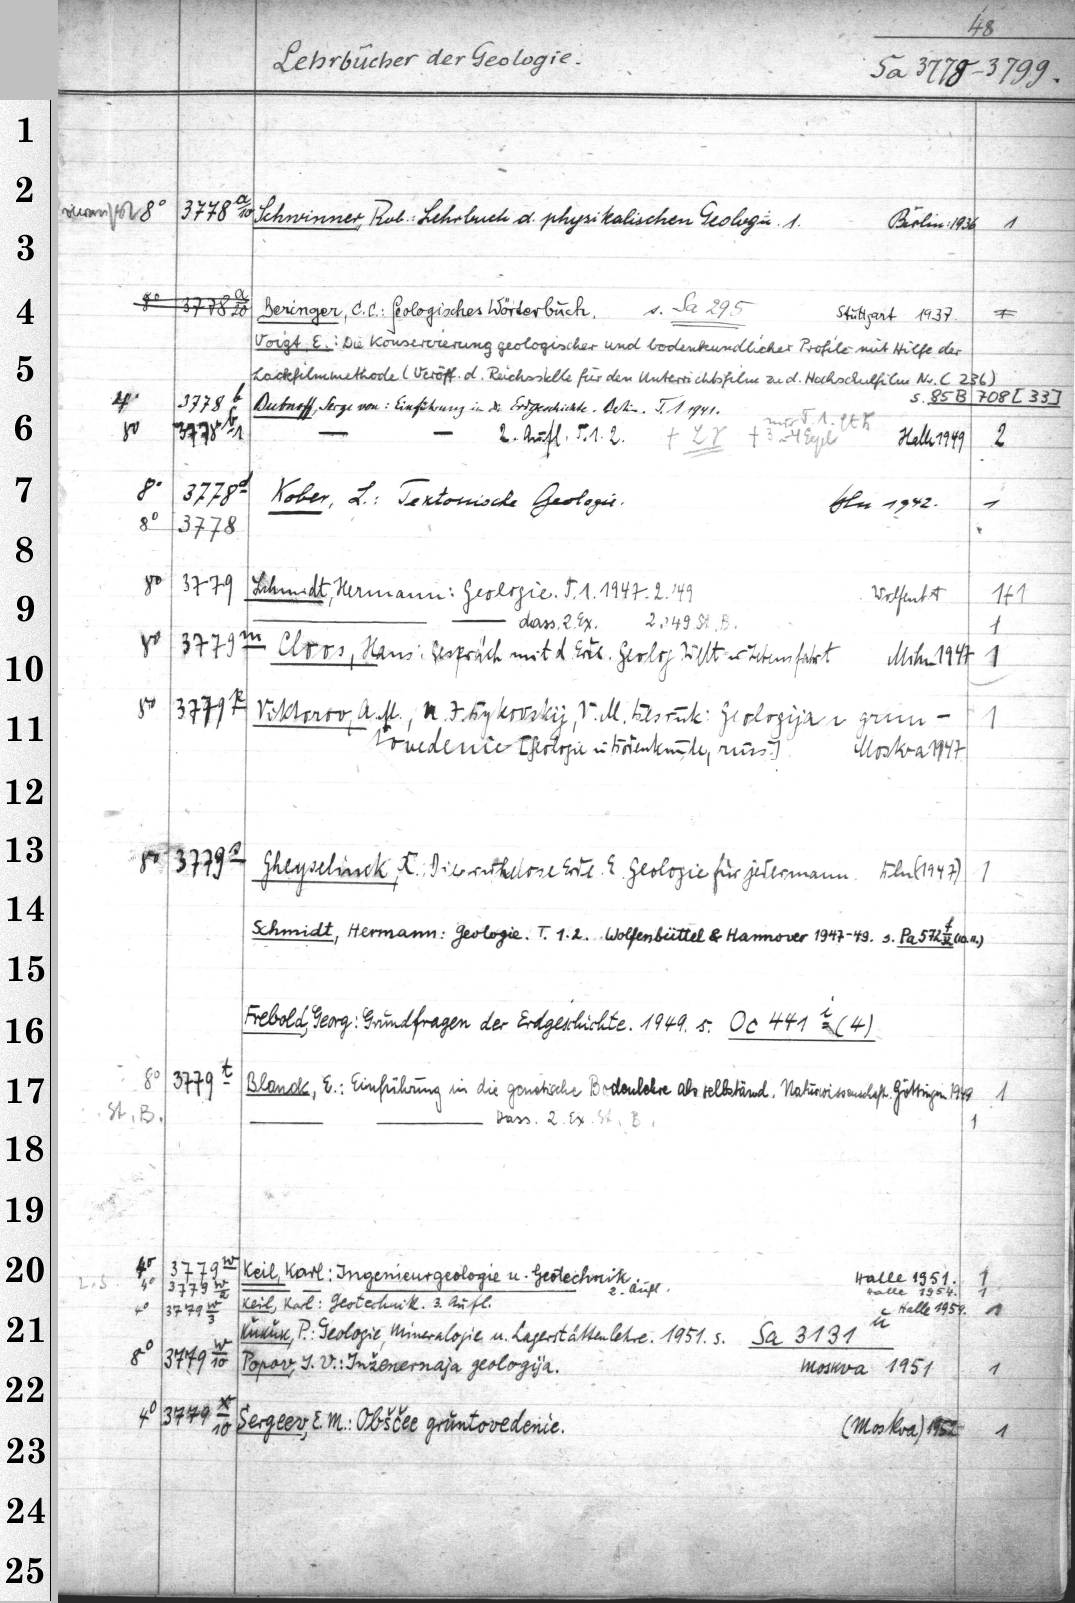 48
Lehrbücher der Geologie.
Sa 3778-3799.
1
2
8° 3778 a/10 Schwinner, Rob.: Lehrbuch d. physikalischen Geologie. 1. Berlin: 1936 1
3
4
8° 3778 a/20 Beringer, C.C.: Geologisches Wörterbuch. s. Sa 295 Stuttgart 1937.
Voigt, E.: Die Konservierung geologischer und bodenkundlicher Profile mit Hilfe der
5
Lackfilmmethode (Veröff. d. Reichsstelle für den Unterrichtsfilm zu d. Hochschulfilm Nr. C 236)
s. 85 B 708 [33]
4° 3778 b Bubnoff, Serge von: Einführung in die Erdgeschichte. Berlin. T. 1 1941.
6
8° 3778 — — 2. Aufl. T. 1. 2. Halle 1949 2
7
8° 3778 d Kober, L.: Tektonische Geologie. Bln 1942. 1
8° 3778
8
8° 3779 Schmidt, Hermann: Geologie. T. 1. 1947. 2. '49 Wolfenb. 1+1
9
— — dass. 2. Ex. 2. '49 St. B. 1
10
8° 3779 m Cloos, Hans: Gespräch mit d. Erde. Geolog. Welt- u. Lebensfahrt Mchn 1947 1
11
8° 3779 Viktorov, A. M., V. M. : Geologija i grun-
tovedenie [Geologie u. Bodenkunde, russ.] Moskva 1947 1
12
13
8° 3779 s Gheyselinck, R.: Die ruhelose Erde. E. Geologie für jedermann. Bln (1947) 1
14
Schmidt, Hermann: Geologie. T. 1.2. Wolfenbüttel & Hannover 1947-49. s. Pa 572 f/32 (10.11.)
15
16
Frebold, Georg: Grundfragen der Erdgeschichte. 1949. s. Oc 441 i (4)
17
8° 3779 t Blanck, E.: Einführung in die genetische Bodenlehre als selbständ. Naturwissenschaft. Göttingen 1949 1
St. B. — — Dass. 2. Ex. St. B. 1
18
19
20
4° 3779 w Keil, Karl: Ingenieurgeologie u. Geotechnik. Halle 1951. 1
L.S. 4° 3779 w/2 — — 2. Aufl. Halle 1954. 1
4° 3779 w/3 Keil, Karl: Geotechnik. 3. Aufl. Halle 1959. 1
21
Kukuk, P.: Geologie, Mineralogie u. Lagerstättenlehre. 1951. s. Sa 3131 u
8° 3779 w/10 Popov, I. V.: Inženernaja geologija. Moskva 1951 1
22
4° 3779 x/10 Sergeev, E. M.: Obščee gruntovedenie. (Moskva) 1952 1
23
24
25